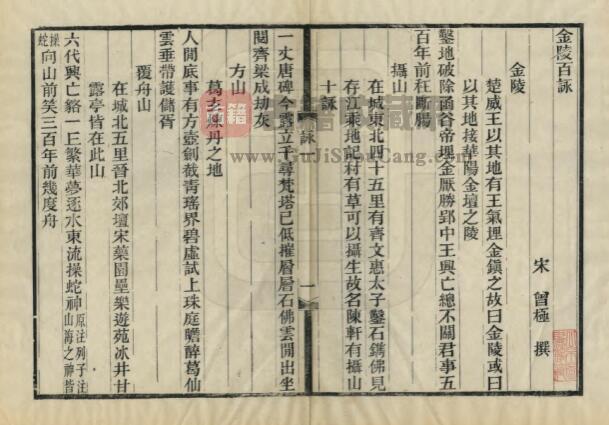 金陵百詠
宋 曾極 撰
金陵
楚威王以其地有王氣埋金鎮之故曰金陵或曰
以其地接華陽金壇之陵
鑿地破除函谷帝埋金厭勝郢中王興亡總不關君事五
百年前枉斷腸
攝山
在城東北四十五里有齊文惠太子鑿石鐫佛見
存江乘地記村有草可以攝生故名陳軒有攝山
十詠
詠
一
一丈唐碑今露立千尋梵塔已低摧層層石佛雲閒出坐
閱齊梁成劫灰
方山
葛玄煉丹之地
人閒底事有方壺劖截青瑤界碧虛試上珠庭瞻醉葛仙
雲垂帶護儲胥
覆舟山
在城北五里晉北郊壇宋藥園壘樂遊苑冰井甘
露亭皆在此山
六代興亡貉一丘繁華夢逐水東流操蛇神原注列子注山海之神皆
操蛇向山前笑三百年前幾度舟
籍
www.GuJiShouCang.com